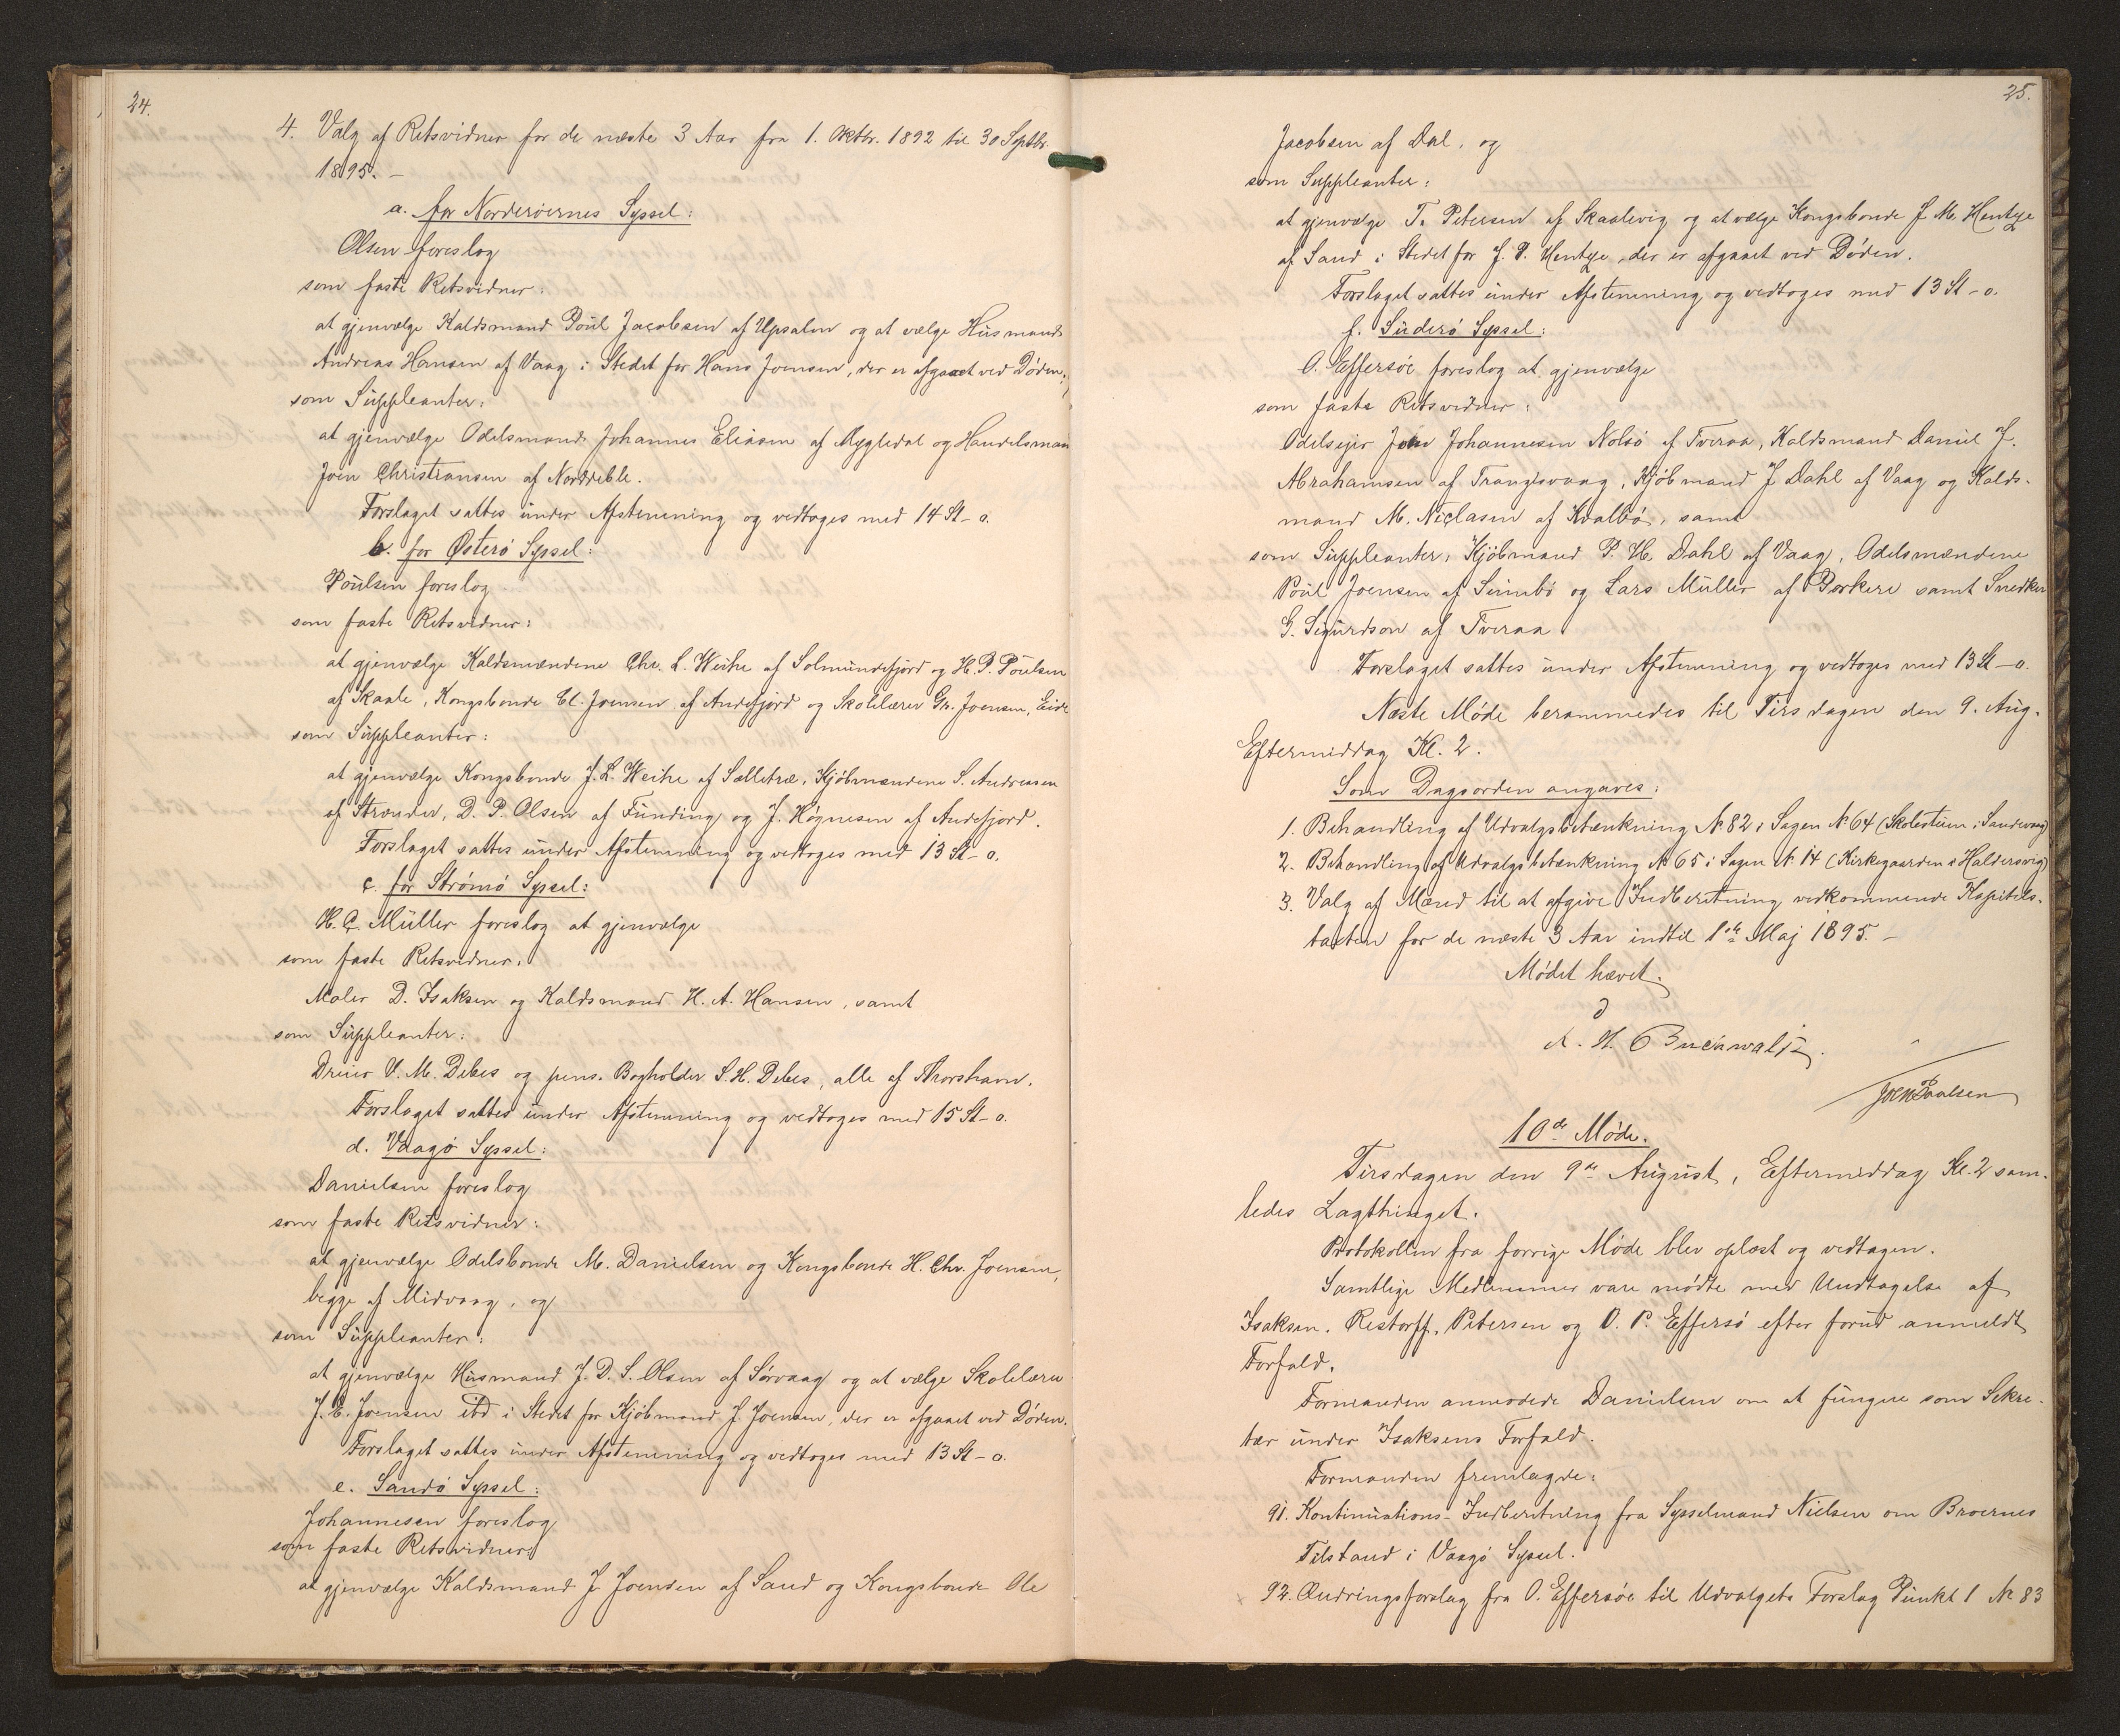 24.
4. Valg af Retsvidner for de næste 3 Aar fra 1. Oktbr. 1892 til 30 Septbr.
1895. –
a. for Norderøernes Syssel:
Olsen foreslog
som faste Retsvidner:
at gjenvælge Kaldsmand Poul Jacobsen af Upsalen og at vælge Husmand
Andreas Hansen af Vaag i Stedet for Hans Joensen, der er afgaaet ved Døden;
som Suppleanter:
at gjenvælge Odelsmand Johannes Eliasen af Mygledal og Handelsman
Joen Christiansen af Norddeble.
Forslaget sattes under Afstemning og vedtoges med 14 St – 0.
b. for Østerø Syssel:
Poulsen foreslog
som faste Retsvidner:
at gjenvælge Kaldsmændene Chr. L. Weihe af Solmundefjord og H. P. Poulsen
af Skaale, Kongsbonde Cl. Joensen af Andefjord og Skolelærer Gr. Joensen, Eide
som Suppleanter:
at gjenvælge Kongsbonde J. L. Weihe af Selletræ, Kjøbmændene S. Andreasen
af Strænder, D. P. Olsen af Funding og J. Høgnesen af Andefjord.
Forslaget sattes under Afstemning og vedtoges med 13 St – 0.
c. for Strømø Syssel:
H. C. Müller foreslog at gjenvælge
som faste Retsvidner:
Maler D. Isaksen og Kaldsmand H. A. Hansen, samt
som Suppleanter:
Dreier V. M. Debes og pens. Bogholder S. H. Debes, alle af Thorshavn.
Forslaget sattes under Afstemning og vedtoges med 15 St – 0.
d. Vaagø Syssel:
Danielsen foreslog
som faste Retsvidner:
at gjenvælge Odelsbonde M. Danielsen og Kongsbonde H. Chr. Joensen,
begge af Midvaag, og
som Suppleanter:
at gjenvælge Husmand J. D. S. Olsen af Sørvaag og at vælge Skolelærer
J. E. Joensen ibd i Stedet for Kjøbmand J. Joensen, der er afgaaet ved Døden.
Forslaget sattes under Afstemning og vedtoges med 13 St – 0.
e. Sandø Syssel:
Johannesen foreslog
som faste Retsvidner:
at gjenvælge Kaldsmand J. Joensen af Sand og Kongsbonde Ole
25.
Jacobsen af Dal, og
som Suppleanter:
at gjenvælge T. Petersen af Skaalevig og at vælge Kongsbonde J. M. Hentze
af Sand i Stedet for J. P. Hentze, der er afgaaet ved Døden.
Forslaget sattes under Afstemning og vedtoges med 13 St – 0.
f. Suderø Syssel:
O. Effersøe foreslog at gjenvælge
som faste Retsvidner:
Odelsejer Johannesen Nolsø af Tveraa, Kaldsmand Daniel J.
Abrahamsen af Trangisvaag, Kjøbmand J. Dahl af Vaag og Kalds-
mand M. Niclasen af Kvalbø, samt
som Suppleanter: Kjøbmand P. H. Dahl af Vaag, Odelsmændene
Poul Joensen af Sumbø og Lars Müller af Porkere samt Snedker
G. Sigurdson af Tveraa
Forslaget sattes under Afstemning og vedtoges med 13 St – 0.
Næste Møde berammedes til Tirsdagen den 9. Aug.
Eftermiddag Kl. 2.
Som Dagsorden angaves:
1. Behandling af Udvalgsbetænkning № 82 i Sagen № 64 (Skolestuen i Sandevaag)
2. Behandling af Udvalgsbetænkning № 65 i Sagen № 14 (Kirkegaarden i Haldersvig)
3. Valg af Mænd til at afgive Indberetning vedkommende Kapitels-
taxten for de næste 3 Aar indtil 1ste Maj 1895. –
Mødet hævet.
A. H. Buchwaldt.
Joen Poulsen
10de Møde.
Tirsdagen den 9de August, Eftermiddag Kl. 2 sam-
ledes Lagthinget.
Protokollen fra forrige Møde blev oplæst og vedtagen.
Samtlige Medlemmer vare mødte med Undtagelse af
Isaksen, Restorff, Petersen og O. P. Effersø efter forud anmeldt
Forfald.
Formanden anmodede Danielsen om at fungere som Sekre-
tær under Isaksens Forfald.
Formanden fremlagde:
91. Kontinuations-Indberetning fra Sysselmand Nielsen om Broernes
Tilstand i Vaagø Syssel.
92. Ændringsforslag fra O. Effersøe til Udvalgets Forslag Punkt 1 № 83